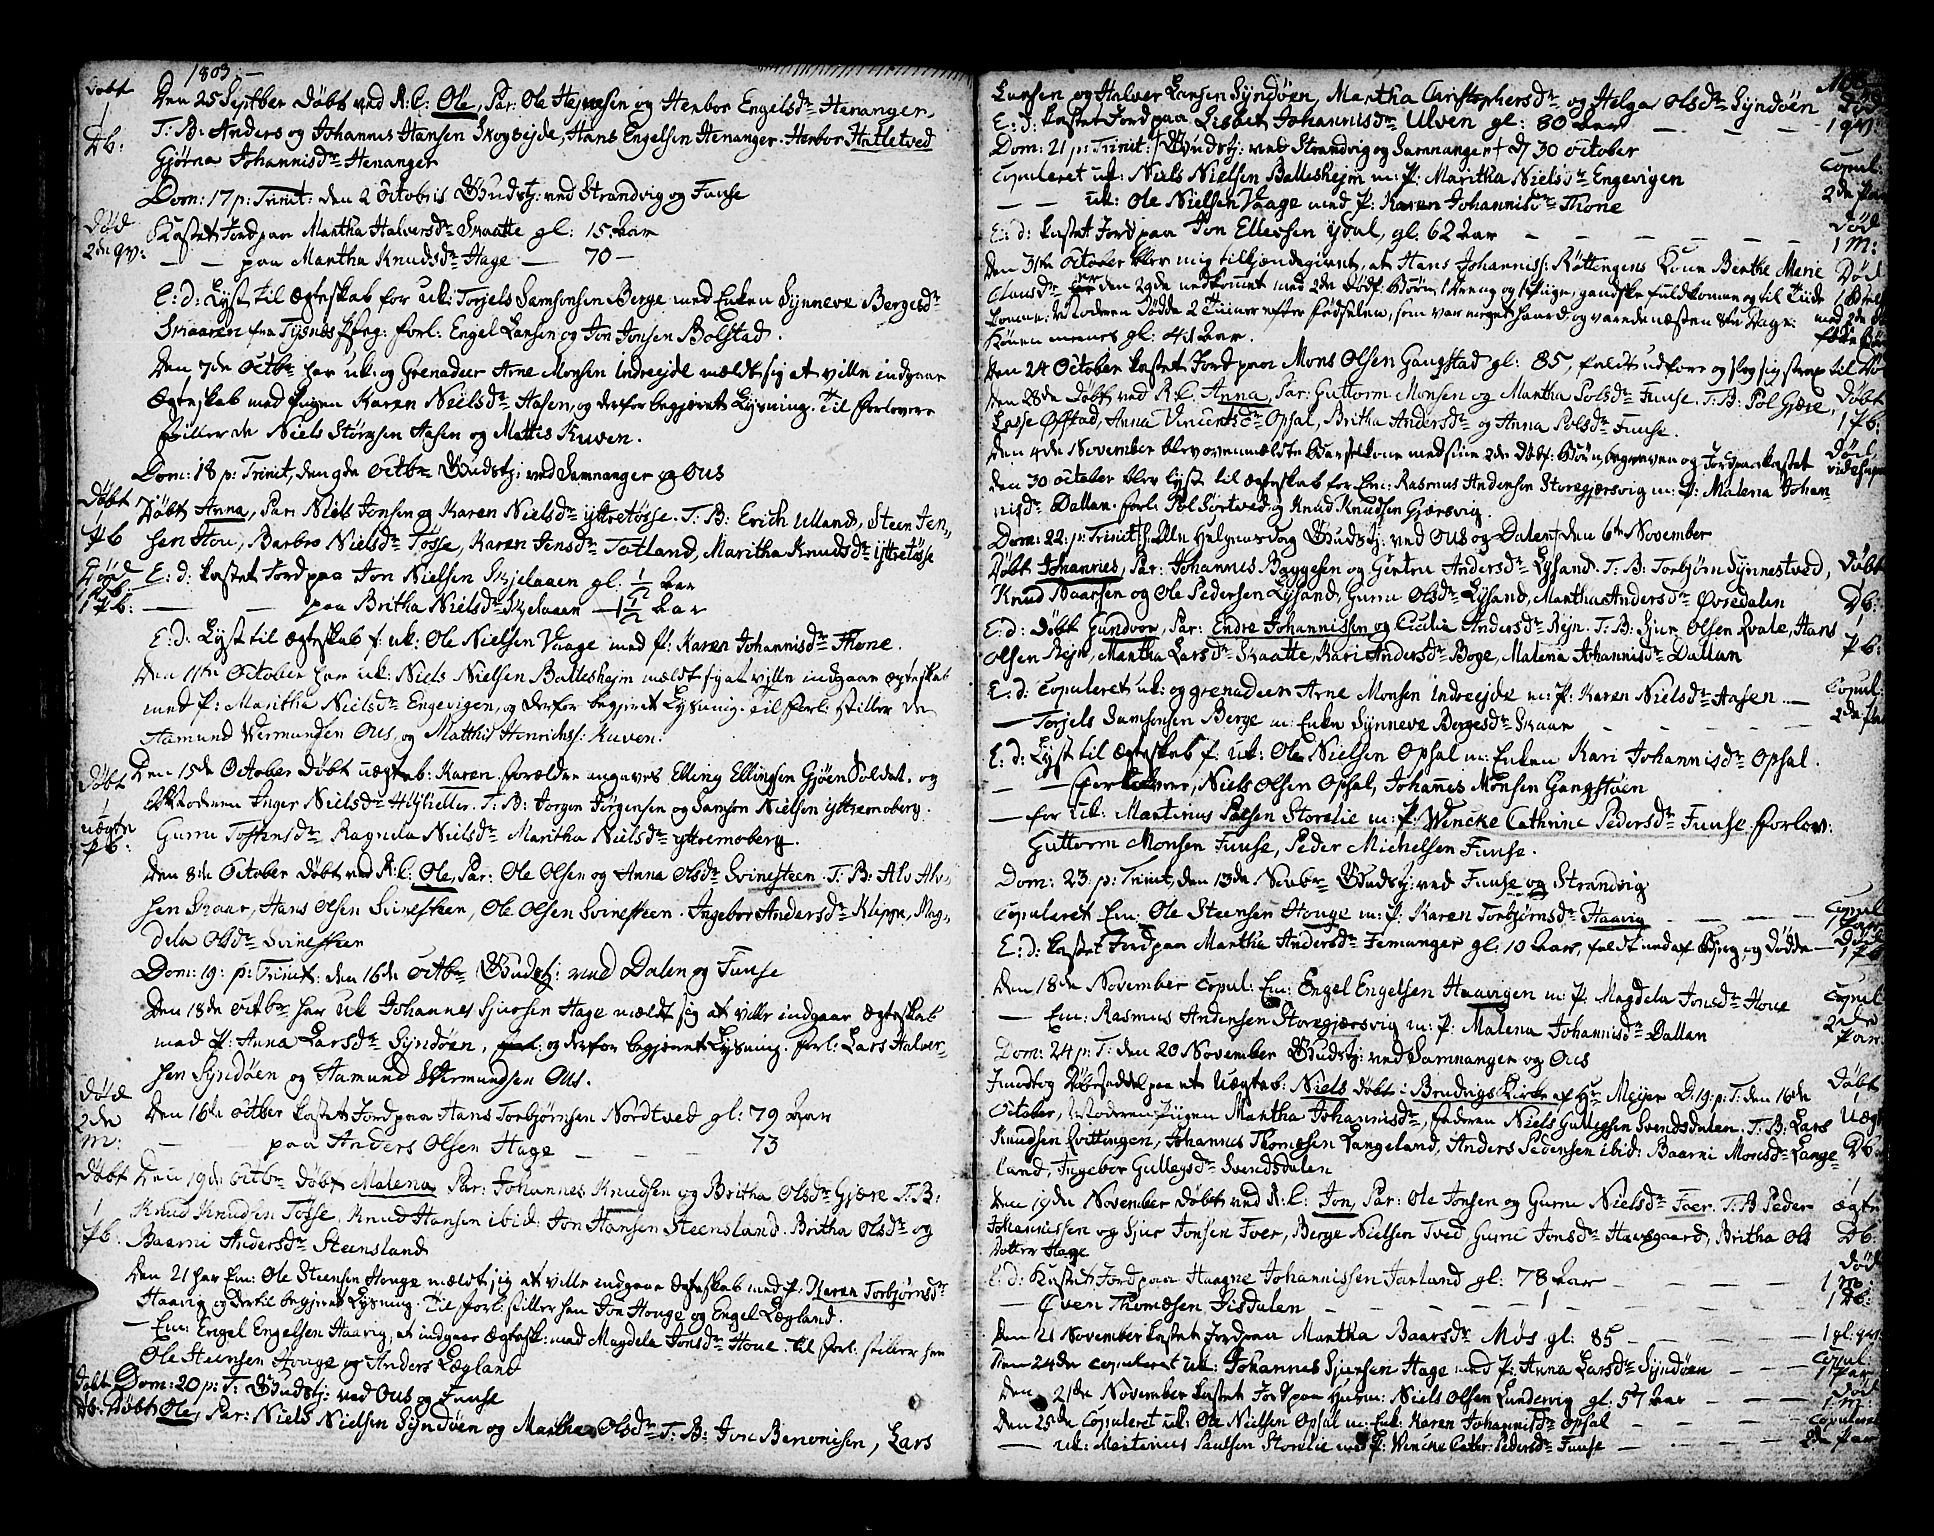 1803
Døbt Den 25 Septber Døbt ved R: C: Ole, Par: Ole Heinesen og Herbor Engelsdr Henanger.
1 Db: T: B: Anders og Johannis Hansen Skogseide, Hans Engelsen Henanger. Herbor Hatletved
Gjørna Johannisdr Henanger
Dom: 17 p: Trinit: den 2 Octobris Gudstj: ved Strandvig og Fuuse
Død Kastet Jord paa Martha Halversdr Skaatte gl: 15. Aar
2de qv: — — paa Martha Knudsdr Hage — 70 —
E: d: Lyst til Ægteskab for uk: Torjels Samsonsen Berge med Enken Synneve Bergesdr
Skaaren fra Tysnes Pstg: forl: Engel Larsen og Jon Jonsen Bolstad.
Den 7de Octbr har uk: og Grenadeer Arne Monsen Indreejde meldt sig at ville indgaae
Ægteskab med Pigen Karen Nielsdr Aasen, og derfor begjeret Lysning. Til Forlovere
stiller de Niels Størksen Aasen og Mattis Kuven.
Dom: 18 p: Trinit, den 9de Octbr Gudstj: ved Samnanger og Ous
Døbt Døbt Anna, Par: Niels Jonsen og Karen Nielsdr Yttretøsse. T: B: Erich Ulland, Steen Jen-
Pb sen Hou, Barbro Nielsdr Tøsse, Karen Jensdr Totland, Maritha Knudsdr Yttretøsse
Død E: d: kastet Jord paa Jon Nielsen Skjelaaen gl: 1/2 Aar
1 Pb: — — paa Britha Nielsdr Skjelaaen — 1 1/2 Aar
E: d: Lyst til Ægteskab f: uk: Ole Nielsen Vaage med P: Karen Johannisdr Thone.
Den 11te October har uk: Niels Nielsen Balleshejm meldt sig at ville indgaae Ægteskab
med P: Maritha Nielsdr Engevigen, og derfor begjeret Lysning. Til Forl: stiller de
Aamund Vermundsen Ous, og Matthis Henrichs: Kuven.
Døbt Den 15de October Døbt uægteb: Karen. Forældre angaves Elling Ellingsen Gjøen Soldat, og
1 Moderen Inger Nielsdr Høyheller. T: B: Jørgen Jørgensen og Samson Nielsen Yttremoberg.
uægte Pb: Guru Toffensdr Ragnela Nielsdr Maritha Nielsdr Yttremoberg.
Den 8de October Døbt ved R: C: Ole, Par: Ole Olsen og Anna Olsdr Svinesteen. T: B: Alv Alv-
sen Skaar, Hans Olsen Svinesteen, Ole Olsen Svinesteen. Ingebor Andersdr Klippe, Mag-
dela Olsdr Svinesteen
Dom: 19: p: Trinit: den 16de Octbr Gudstj: ved Dalen og Fuuse
Den 18de Octbr har uk Johannes Sjursen Hage meldt sig at ville indgaae Ægteskab
med P: Anna Larsdr Syndøen, og derfor begjeret Lysning. forl: Lars Halver-
sen Syndøen og Aamund Vermundsen Ous.
Død 2de Den 16de Octber kastet Jord paa Hans Torbjørnsen Nordtved gl: 79 Aar
M: — — paa Anders Olsen Hage — — 73
Døbt Den 19de Octbr Døbt Malena, Par: Johannes Knudsen og Britha Olsdr Gjære T: B:
1 Knud Knudsen Tøsse, Knud Hansen ibid: Jon Hansen Steensland. Britha Olsdr og
Pb. Baarni Andersdr Steensland
Den 21 har Em: Ole Steensen Houge meldt sig at ville indgaae Ægteskab med P. Karen Torbjørnsdr
Haavig og dertil begjeret Lysning. Til forl: stiller han Jon Houge og Engel Lægland.
— Em: Engel Engelsen Haavig, at indgaae Ægtesk: med Magdela Jonsdr Houe. Til forl: stiller han
Ole Steensen Houge og Anders Lægland
Døbt Dom: 20 p: T: Gudstj: ved Ous og Fuuse
Db: Døbt Ole, Par: Niels Nielsen Syndøen og Martha Olsdr T: B: Jon Benonisen, Lars
Larsen og Halver Larsen Syndøen, Martha Christophersdr og Helga Olsdr Syndøen
E: d: kastet Jord paa Lisbet Johannisdr Ulven gl: 80 Aar — — — Død 1 qv:
Dom: 21 p: Trinit: Gudstj: ved Strandvig og Samnanger d 30 October
Copuleret uk: Niels Nielsen Balleshejm m: P: Maritha Nielsdr Engevigen Copul:
— — uk: Ole Nielsen Vaage med P: Karen Johannisdr Thone 2de Par
E: d: kastet Jord paa Jon Ellessen Ydal, gl: 62 Aar — — — Død 1 M:
Den 31te October blev mig tilkjendegivet, at Hans Johanniss: Røttingens Kone Berthe Marie Død
Clausdr er den 29de nedkommet med 2de Dødf: Børn, 1 Dreng og 1 Pige, gandske fuldkomne og til Tiide
komne: Moderen Døde 2 Timer efter Fødselen, som var meget haard, og varede næsten 8te Dage.
Konen menes gl: 41 Aar.
Den 24 October kastet Jord paa Mons Olsen Gangstad gl: 85, faldt udfore og slog sig strax til Død
Den 28de Døbt ved R. C. Anna, Par: Guttorm Monsen og Martha Polsdr Fuuse. T. B: Pol Gjære, Døbt
Lasse Øfstad, Anna Vincentsdr Opsal, Britha Andersdr og Anna Polsdr Fuuse. 1 Pb:
Den 4de November blev ovenmeldte Barselkone med sine 2de Dødf: Børn begraven og Jord paakastet Død
Den 30 October blev lyst til Ægteskab for Em: Rasmus Andersen Storegjærsvig m: P: Malena Johan-
nisdr Dallan. forl: Pol Sørtved og Knud Knudsen Gjersvig.
Dom: 22: p: Trinit: Alle Helgensdag Gudstj: ved Ous og Dalen den 6te November
Døbt Johannes, Par: Johannes Baggesen og Giertru Andersdr Lysand. T: B: Torbjørn Synnestved, Døbt
Knud Baarsen og Ole Pedersen Lysand, Guru Olsdr Lysand, Martha Andersdr Øvredalen Db:
E: d: Døbt Gundvor, Par: Endre Johannissen og Cicilie Andersdr Røjn. T: B: Sjur Olsen Qvale, Hans
Olsen Røjn, Martha Larsdr Skaatte, Kari Andersdr Boge, Malena Johannisdr Dallan Pb:
E: d: Copuleret uk: og grenadeer Arne Monsen Indreejde m: P: Karen Nielsdr Aasen — Copul:
— Torjels Samsonsen Berge m: Enke Synneve Bergesdr Skaar — — 2de Par
E: d: Lyst til Ægteskab f: uk: Ole Nielsen Opsal m: Enken Kari Johannisdr Opsal.
— — Forlovere, Niels Olsen Opsal, Johannes Monsen Gangstøen
— for uk: Martinus Polsen Storelie m: P: Wencke Cathrine Pedersdr Fuuse Forlov:
Guttorm Monsen Fuuse, Peder Michelsen Fuuse.
Dom: 23. p: Trinit, den 13de Novbr Gudstj: ved Fuuse og Strandvig
Copuleret Em: Ole Steensen Houge m: P: Karen Torbjørnsdr Haavig — — — Copul 1 Par
E: d: kastet Jord paa Martha Andersdr Femanger gl: 10 Aar, faldt ned af Bjerg og Døde — Død 1 Pb
Den 18de November Copul: Em: Engel Engelsen Haavigen m: P. Magdela Jonsdr Houe Copul:
— Em: Rasmus Andersen Storegjærsvig m: P: Malena Johannisdr Dallan 2de Par
Dom: 24 p: T: den 20 November Gudstj: ved Samnanger og Ous
Indtog Døbeseddel paa et Uægteb: Niels døbt i Bruvigs Kirke af Hr Meyer D: 19: p: T. den 16de Døbt
October, Moderen Pigen Martha Johannisdr, faderen Niels Gullegsen Svendsdalen. T: B: Lars Uægt
Knudsen Qvittingen, Johannes Thomæsen Langeland, Anders Pedersen ibid: Baarni Monsdr Lange- Db
land, Ingebor Gullegsdr Svendsdalen
Den 19de November Døbt ved R: C: Jon, Par: Ole Jonsen og Guru Nielsdr Toer. T: B Peder ægte
Johannissen og Sjur Jonsen Toer, Berge Nielsen Tved, Guru Jonsdr Haavsgaard, Britha Ols Db:
Datter Hage
E: d: Kastet Jord paa Haagne Johannissen Jarland gl: 78 Aar — — — Død 1 M:
— Øven Thomæsen Gisdalen — — — 1 — — 1 Db:
Den 21 November kastet Jord paa Martha Baarsdr Møs gl: 85 — — — 1 gl: qv:
Den 24de Copuleret uk: Johannes Sjursen Hage med P: Anna Larsdr Syndøen — — Copul: 1 Par
Den 21de November kastet Jord paa Huusm: Niels Olsen Lundervig gl: 57 Aar — — Død 1 M:
Den 25de Copuleret uk: Ole Nielsen Opsal m: Enk: Karen Johannisdr Opsal — — Copuleret
— uk: Martinus Paulsen Storelie med P: Wencke Cathr: Pedersdr Fuuse — — 2de Par